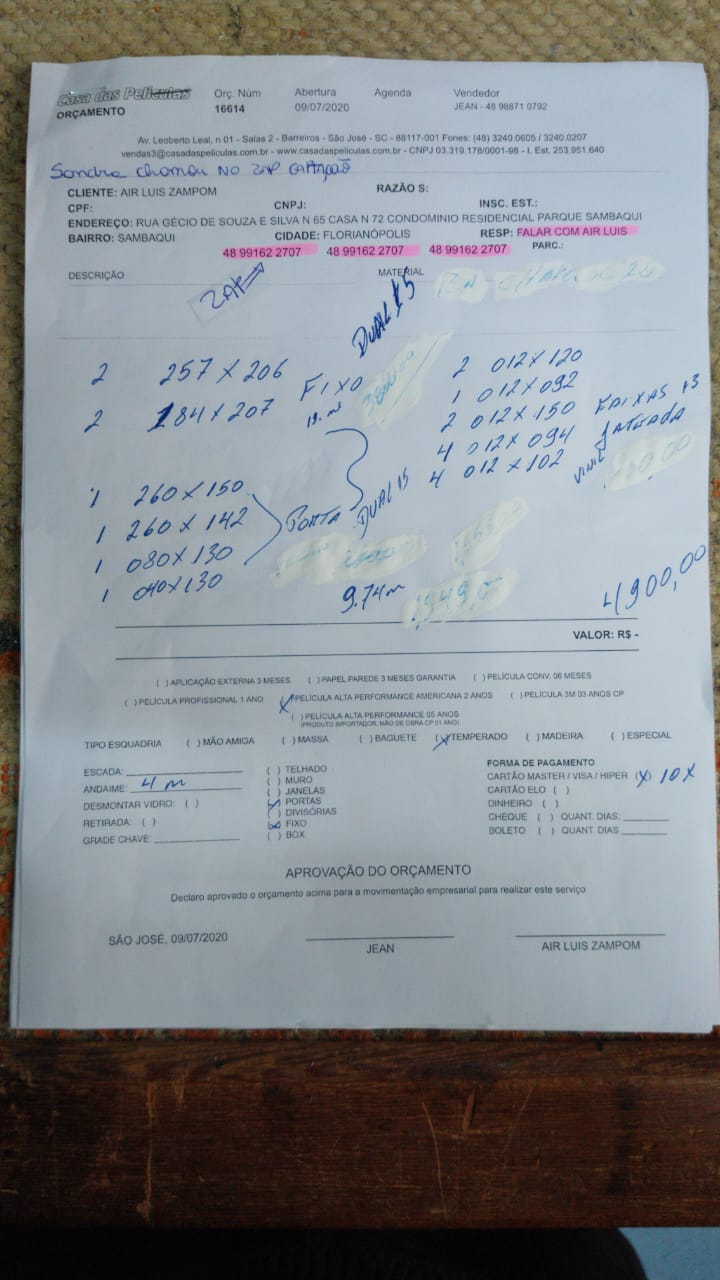 Casa das Películas
ORÇAMENTO
Orç. Núm
16614
Abertura
09/07/2020
Agenda
Vendedor
JEAN - 48 98871 0792
Av. Leoberto Leal, n 01 - Salas 2 - Barreiros - São José - SC - 88117-001 Fones: (48) 3240.0605 / 3240.0207
vendas3@casadaspeliculas.com.br - www.casadaspeliculas.com.br - CNPJ 03.319.178/0001-98 - I. Est. 253.951.640
Sandra chamou NO ZAP CAPTAÇÃO
CLIENTE: AIR LUIS ZAMPOM
RAZÃO S:
CPF:
CNPJ:
INSC. EST.:
ENDEREÇO: RUA GÉCIO DE SOUZA E SILVA N 65 CASA N 72 CONDOMINIO RESIDENCIAL PARQUE SAMBAQUI
BAIRRO: SAMBAQUI
CIDADE: FLORIANÓPOLIS
RESP: FALAR COM AIR LUIS
48 99162 2707
48 99162 2707
48 99162 2707
PARC.:
DESCRIÇÃO
MATERIAL
ZAP
DUAL 15
2 257 X 206
2 184 X 207
FIXO
2 012 X 120
1 012 X 092
2 012 X 150
4 012 X 094
4 012 X 102
FAIXAS
JATEADA
VINIL
1 260 X 150
1 260 X 142
1 080 X 130
1 040 X 130
PORTA
DUAL 15
9.74 m
4900,00
VALOR: R$ -
( ) APLICAÇÃO EXTERNA 3 MESES ( ) PAPEL PAREDE 3 MESES GARANTIA ( ) PELÍCULA CONV. 06 MESES
( ) PELÍCULA PROFISSIONAL 1 ANO (X) PELÍCULA ALTA PERFORMANCE AMERICANA 2 ANOS ( ) PELÍCULA 3M 03 ANOS CP
( ) PELÍCULA ALTA PERFORMANCE 05 ANOS
(PRODUTO IMPORTADOR, MÃO DE OBRA CP 01 ANO)
TIPO ESQUADRIA ( ) MÃO AMIGA ( ) MASSA ( ) BAGUETE (X) TEMPERADO ( ) MADEIRA ( ) ESPECIAL
ESCADA:
ANDAIME: 4 m
DESMONTAR VIDRO: ( )
RETIRADA: ( )
GRADE CHAVE:
( ) TELHADO
( ) MURO
( ) JANELAS
(X) PORTAS
( ) DIVISÓRIAS
(X) FIXO
( ) BOX
FORMA DE PAGAMENTO
CARTÃO MASTER / VISA / HIPER (X) 10 X
CARTÃO ELO ( )
DINHEIRO ( )
CHEQUE ( ) QUANT. DIAS:
BOLETO ( ) QUANT. DIAS
APROVAÇÃO DO ORÇAMENTO
Declaro aprovado o orçamento acima para a movimentação empresarial para realizar este serviço
SÃO JOSÉ, 09/07/2020
JEAN
AIR LUIS ZAMPOM